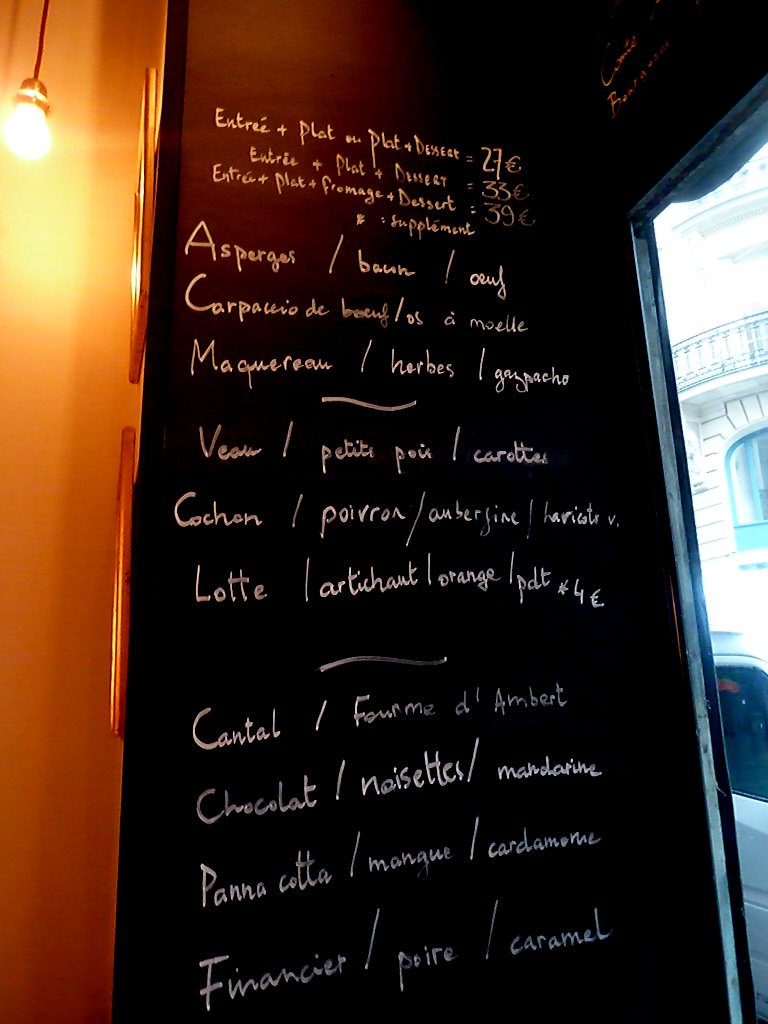 Comté
Bourgogne
Entrée + plat ou plat + Dessert = 27€
Entrée + plat + Dessert = 33€
Entrée + plat + fromage + Dessert = 39€
* : supplément
Asperges / bacon / œuf
Carpaccio de boeuf / os à moelle
Maquereau / herbes / gazpacho
Veau / petits pois / carottes
Cochon / poivron / aubergine / haricots v.
Lotte / artichaut / orange / pdt * 4€
Cantal / Fourme d'Ambert
Chocolat / noisettes / mandarine
Panna cotta / mangue / cardamome
Financier / poire / caramel